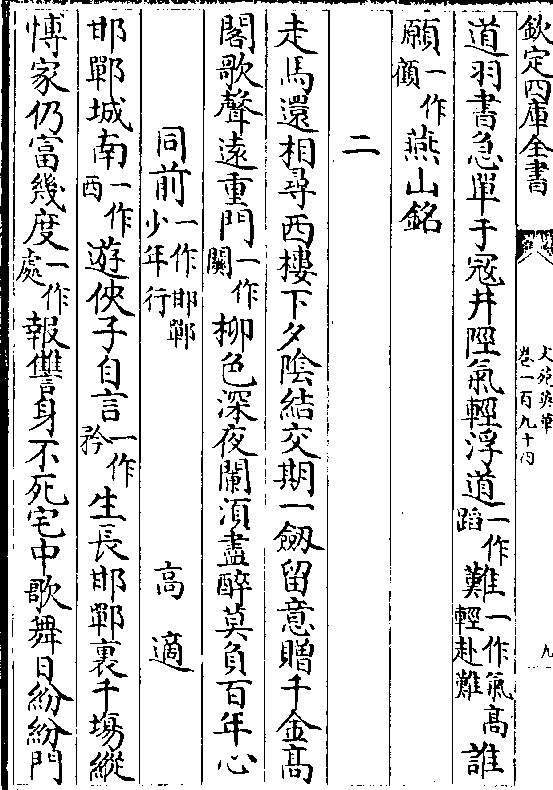 欽定四庫全書
文苑英華
卷一百九十四
九
道羽書急單于冦井陘氣輕浮道一作蹈難一作氣高輕赴難誰
願一作顧燕山銘
二
走馬還相尋西樓下夕陰結交期一劒留意贈千金髙
閣歌聲遠重門一作關柳色深夜闌湏盡醉莫負百年心
同前一作邯鄲少年行 高適
邯鄲城南一作西遊俠子自言一作矜生長邯鄲裏千塲縱
博家仍富幾度一作處報讐身不死宅中歌舞日紛紛門